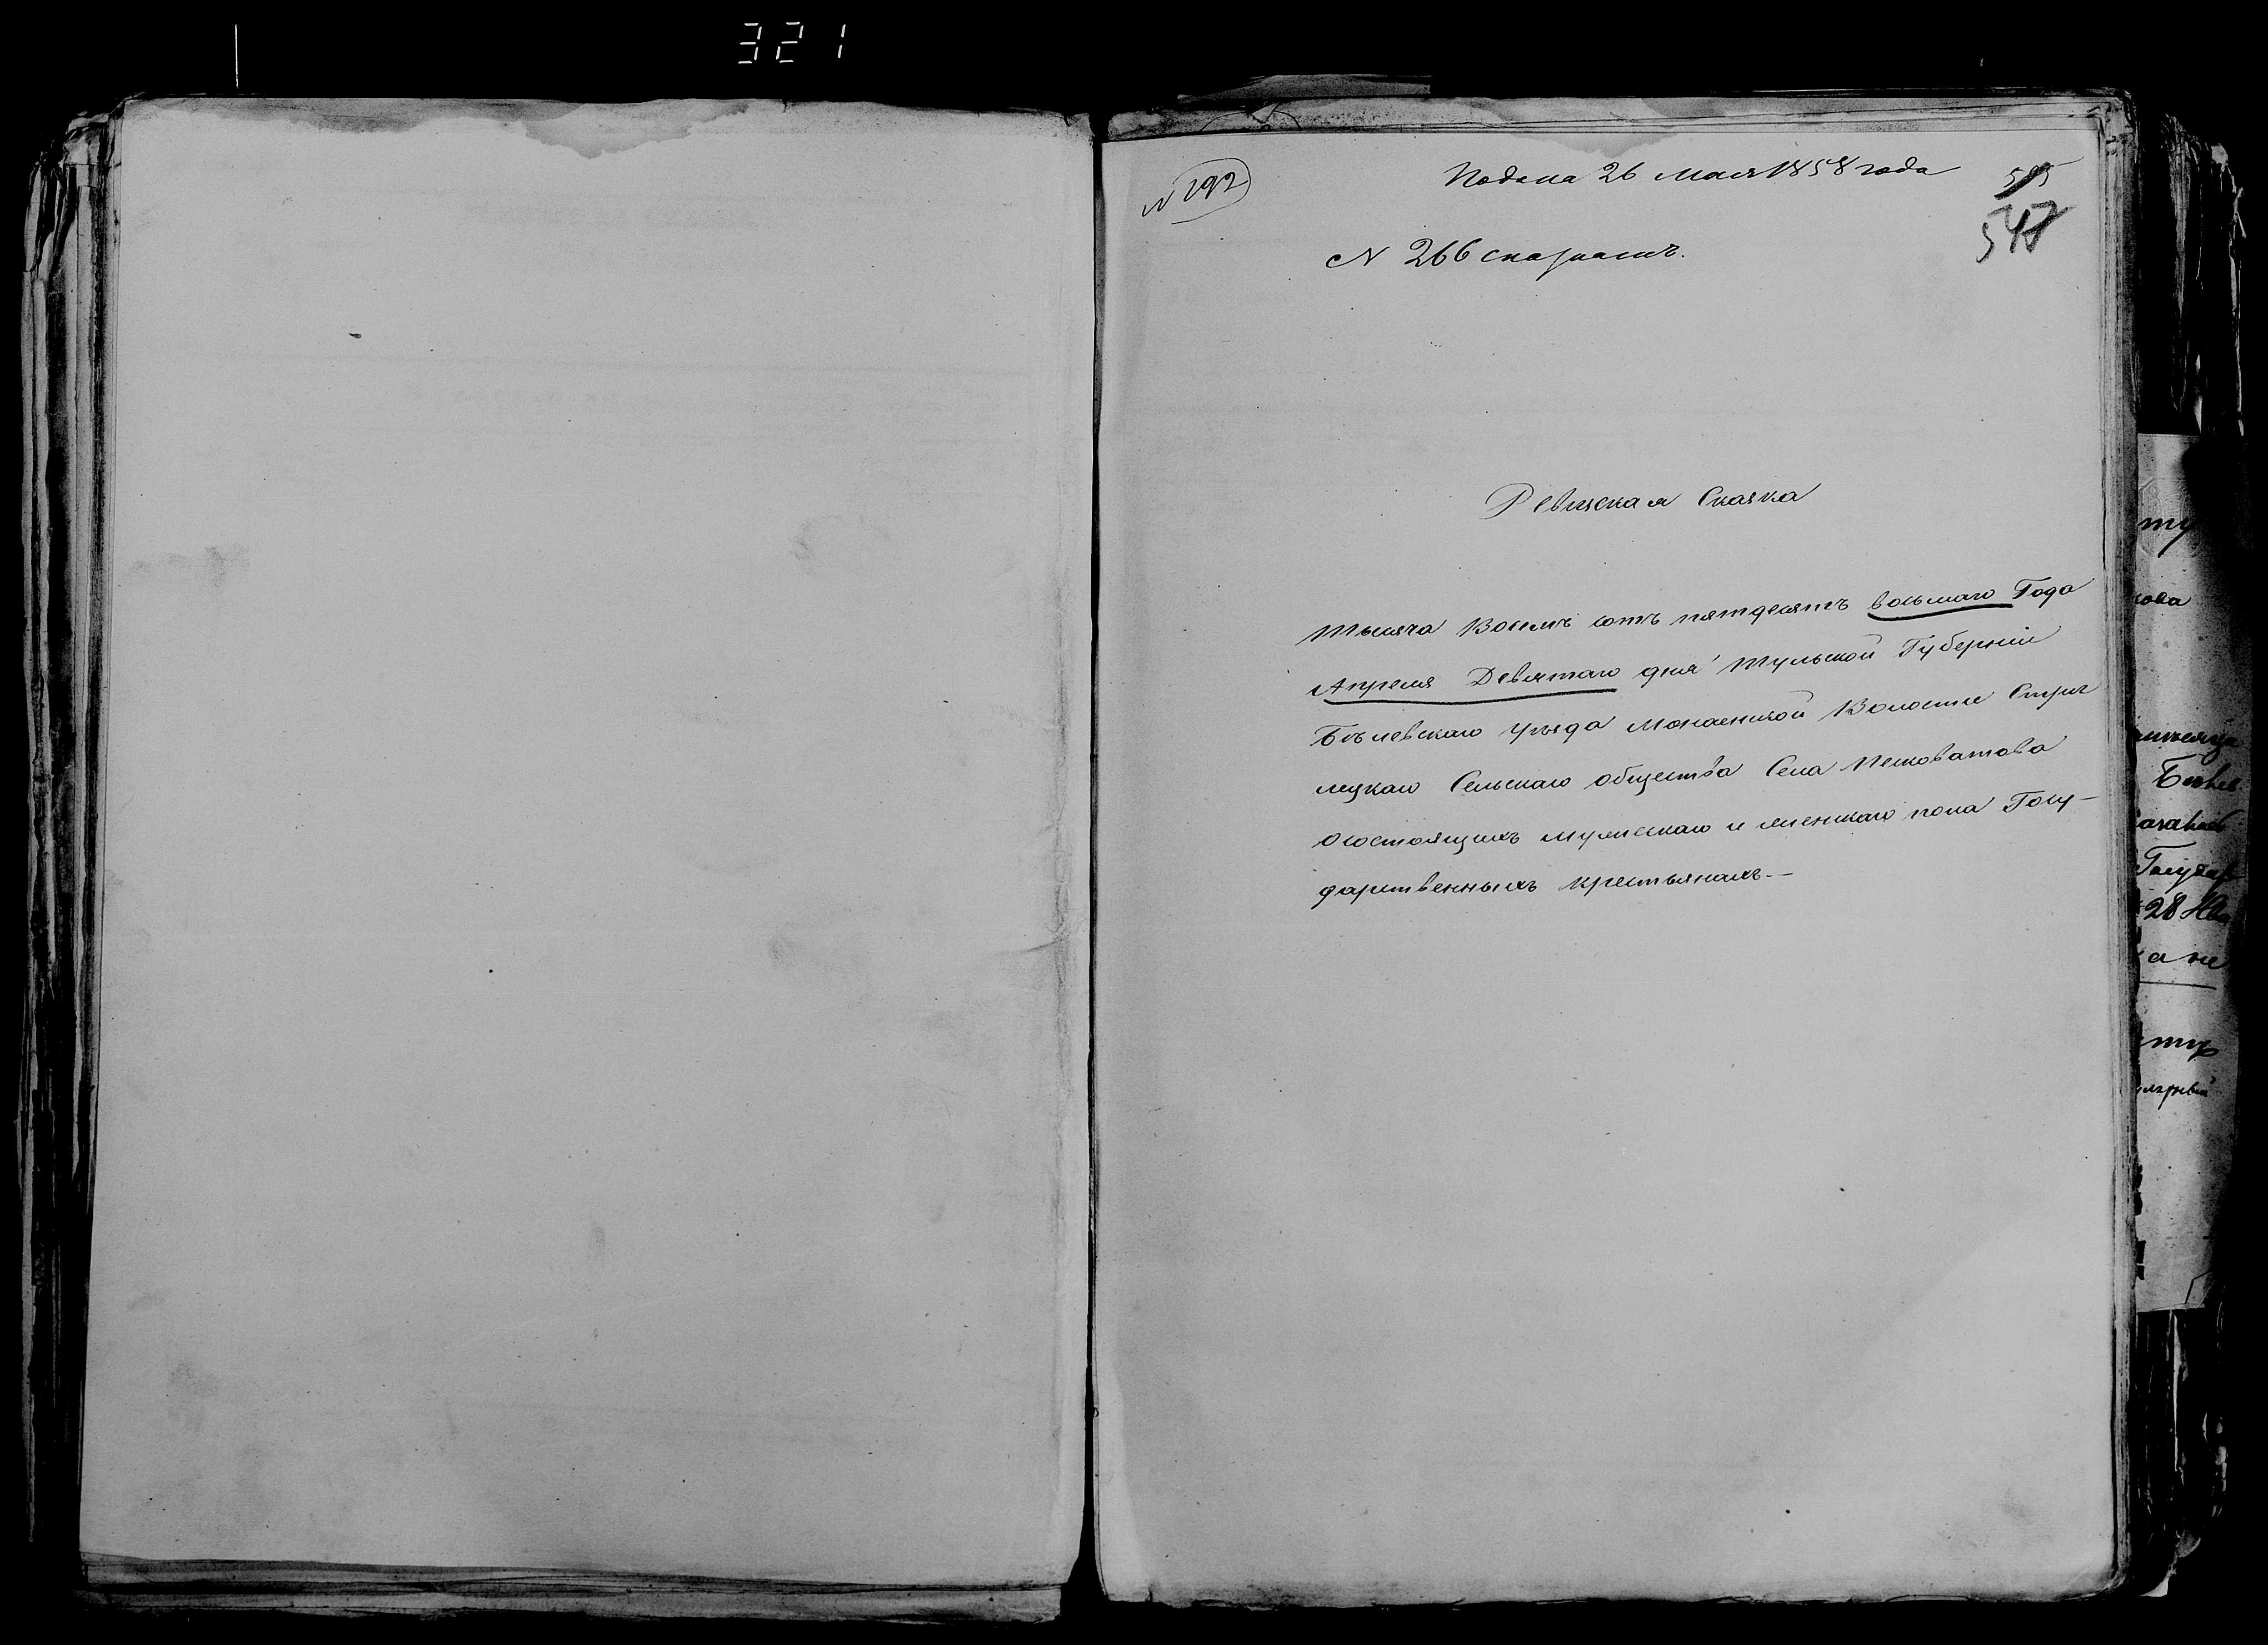 321
N 192
Подана 26 Мая 1858 года
N 266
547
Ревизская Сказка
Тысяча Восемь сотъ пятдесятъ восьмаго Года
Апреля Девятаго дня Тульской Губерніи
Бѣлевскаго уѣзда Монаенкой Волости Стрѣ
лецкаго Сельскаго общества Села Песковатова
о состоящихъ мужескаго и женскаго пола Госу-
дарственныхъ крестьянахъ.—
ту
кова
Бѣлев
Государ
28 Ив